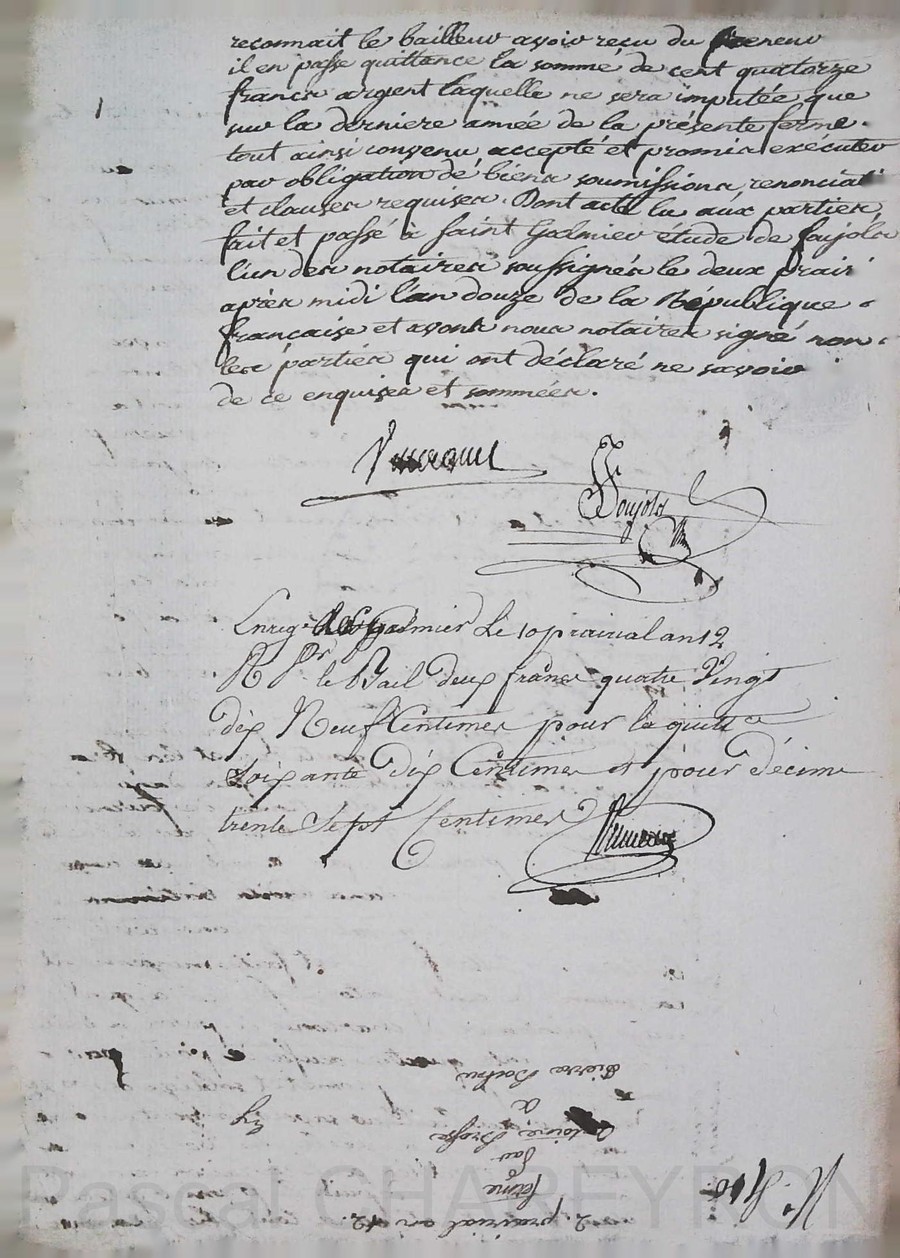 reconnait le bailleur avoir reçu du preneur
il en passe quittance la somme de cent quatorze
francs argent laquelle ne sera imputée que
sur la derniere année de la présente ferme.
tout ainsi convenu accepté et promis exécuter
par obligation de biens soumissions, renonciati
et clauses requises. Dont acte lu aux parties
fait et passé à Saint Galmier étude de foujols
l'un des notaires soussignés le deux prairi
après midi l'an douze de la République
française et avons nous notaires signé non
les parties qui ont déclaré ne savoir
de ce enquises et sommées.
Foujols
Enreg. Galmier Le 10 prairial an 12
R pr le Bail deux francs quatre Vingt
dix Neuf Centimes pour la quitt ce
Soixante Dix Centimes et pour décime
trente Sept Centimes
2. prairial an 12.
ferme
par
antoine
a
pierre
N.
Pascal CHABEYRON